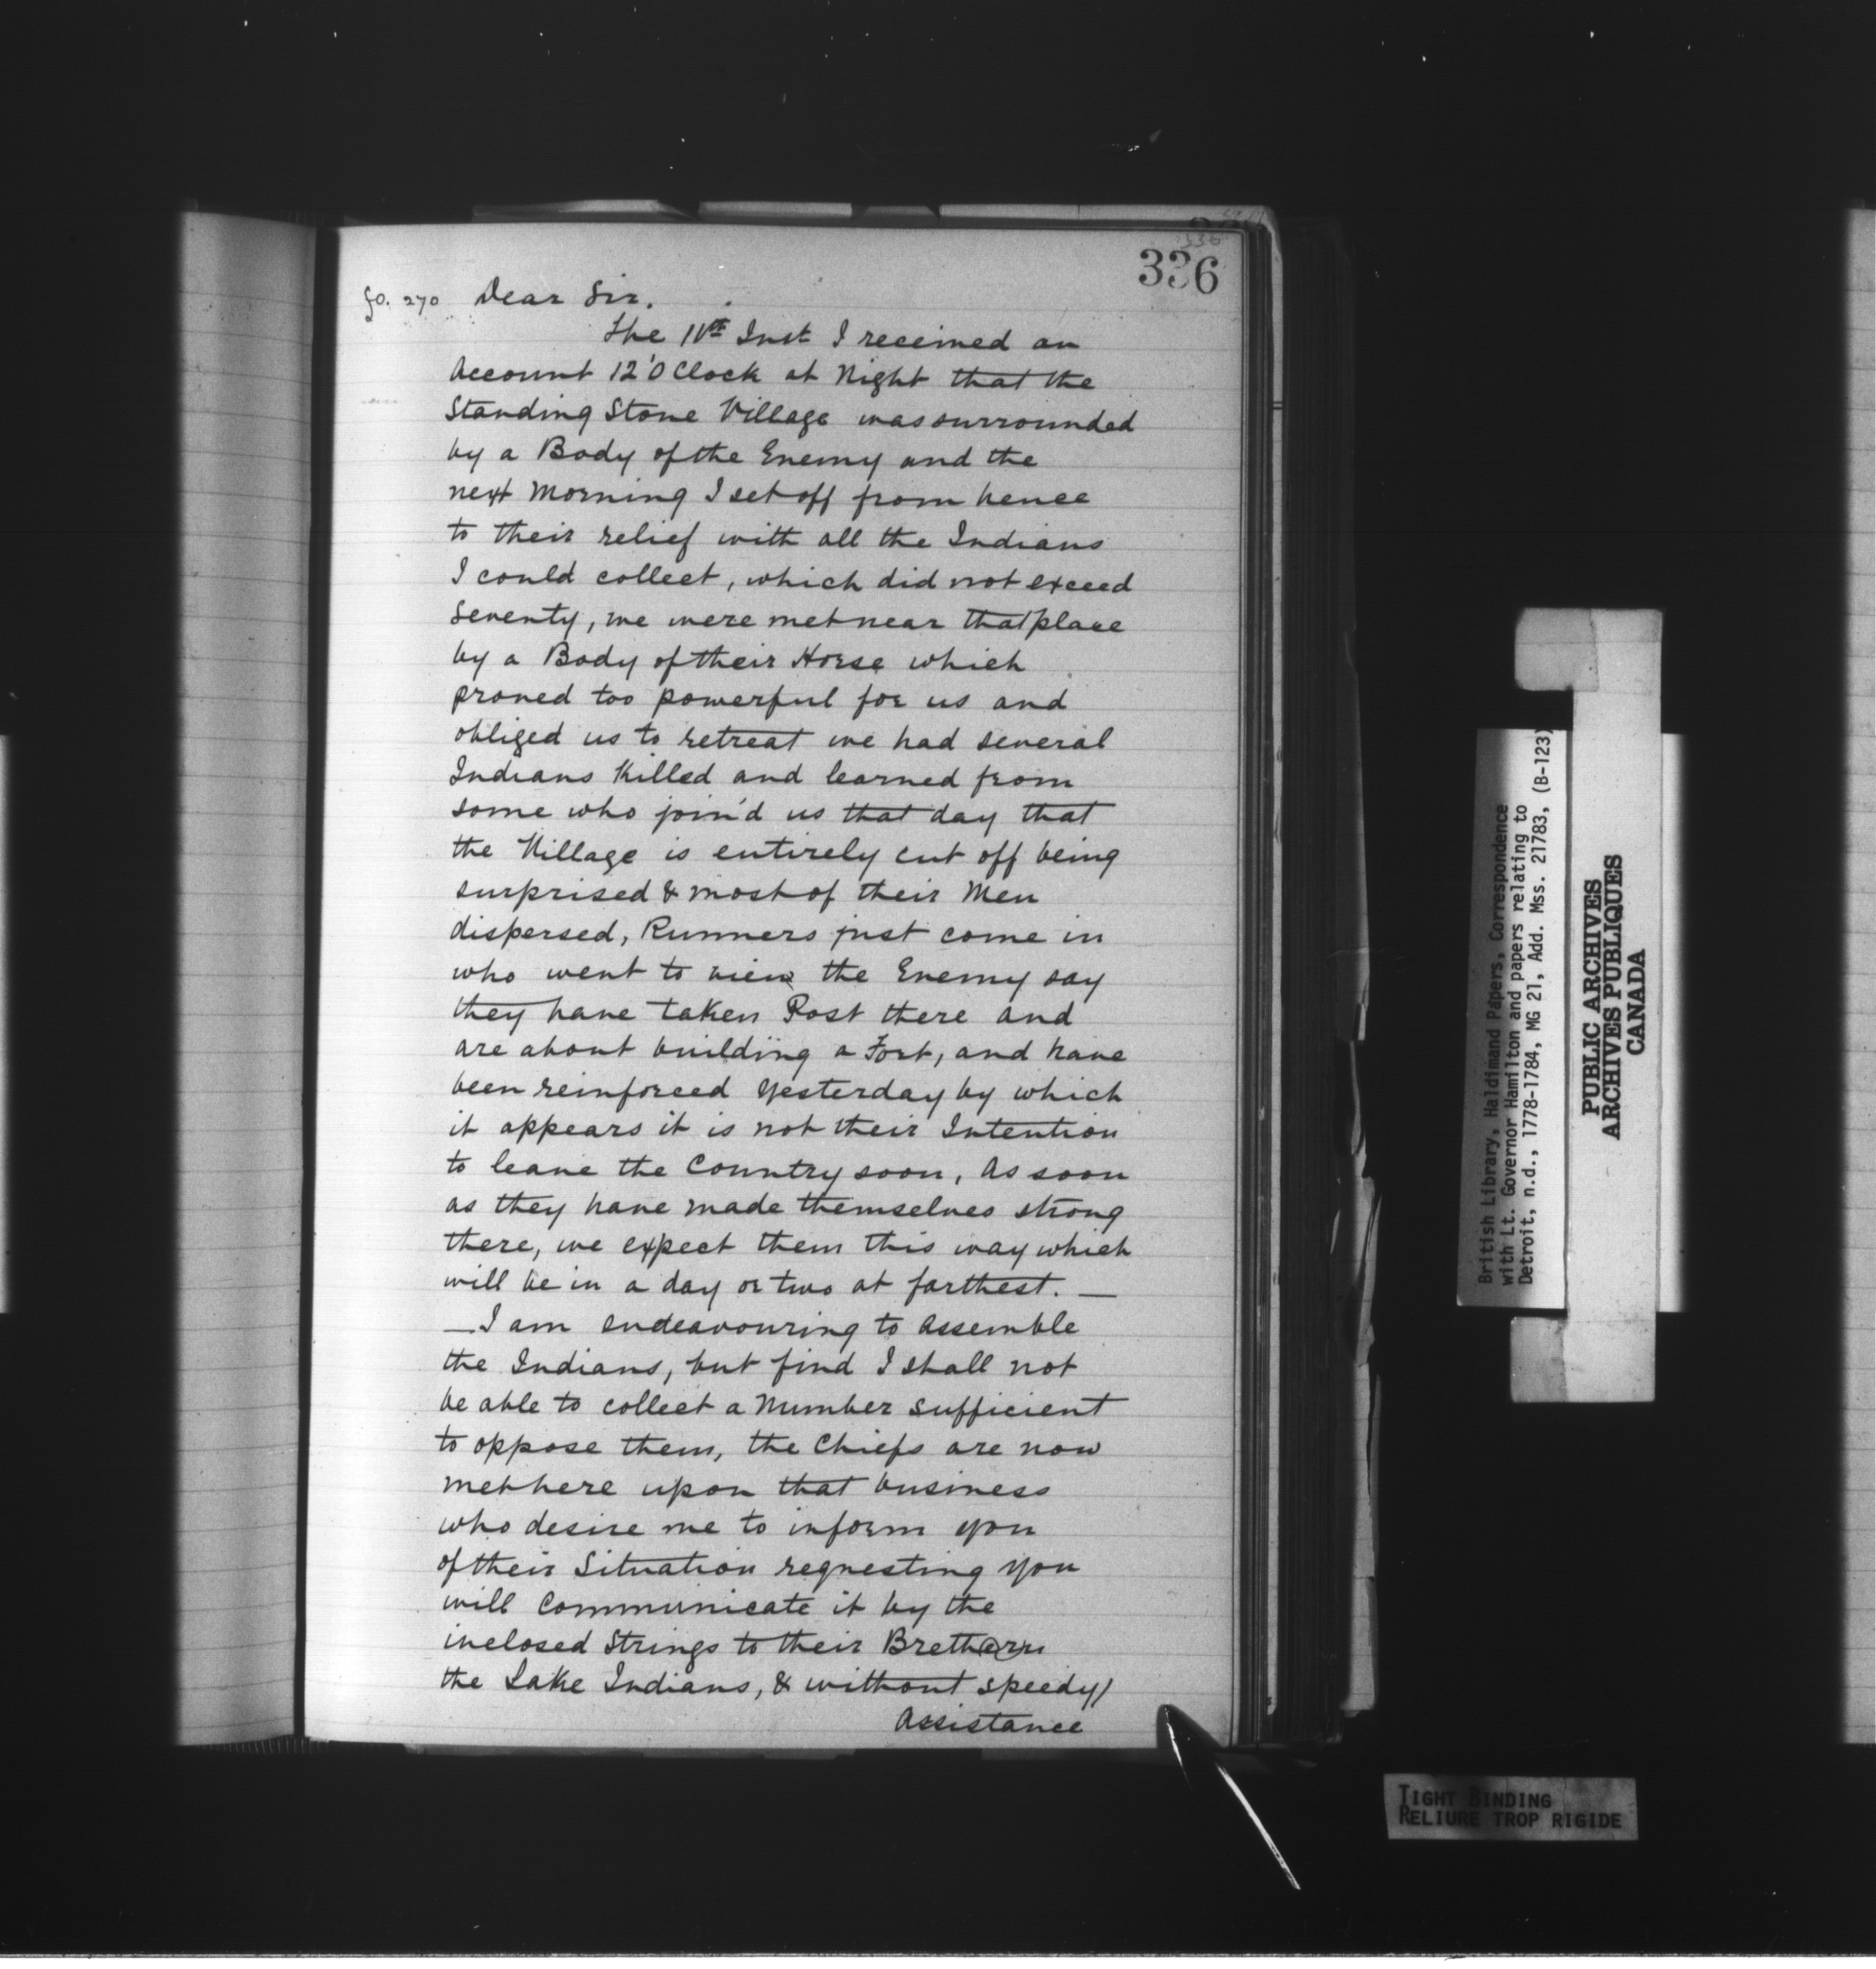 336
fo. 270 Dear Sir.
The 11th Inst I received an
Account 12'OClock at Night that the
Standing Stone Village was surrounded
by a Body of the Enemy and the
next Morning I set off from hence
to their relief with all the Indians
I could collect, which did not exceed
Seventy, we were met near that place
by a Body of their Horse which
proved too powerful for us and
obliged us to retreat we had several
Indians Killed and learned from
some who join'd us that day that
the Village is entirely cut off being
surprised & most of their Men
dispersed, Runners just come in
who went to view the Enemy say
they have taken Post there and
are about building a Fort, and have
been reinforced Yesterday by which
it appears it is not their Intention
to leave the Country soon, As soon
as they have made themselves strong
there, we expect them this way which
will be in a day or two at farthest. —
— I am endeavouring to Assemble
the Indians, but find I shall not
be able to collect a Number sufficient
to oppose them, the Chiefs are now
met here upon that business
who desire me to inform you
of their Situation requesting You
will Communicate it by the
inclosed Strings to their Brethern
the Lake Indians, & without speedy/
Assistance
British Library, Haldimand Papers, Correspondence
with Lt. Governor Hamilton and papers relating to
Detroit, n.d., 1778-1784, MG 21, Add. Mss. 21783, (B-123)
PUBLIC ARCHIVES
ARCHIVES PUBLIQUES
CANADA
TIGHT BINDING
RELIURE TROP RIGIDE